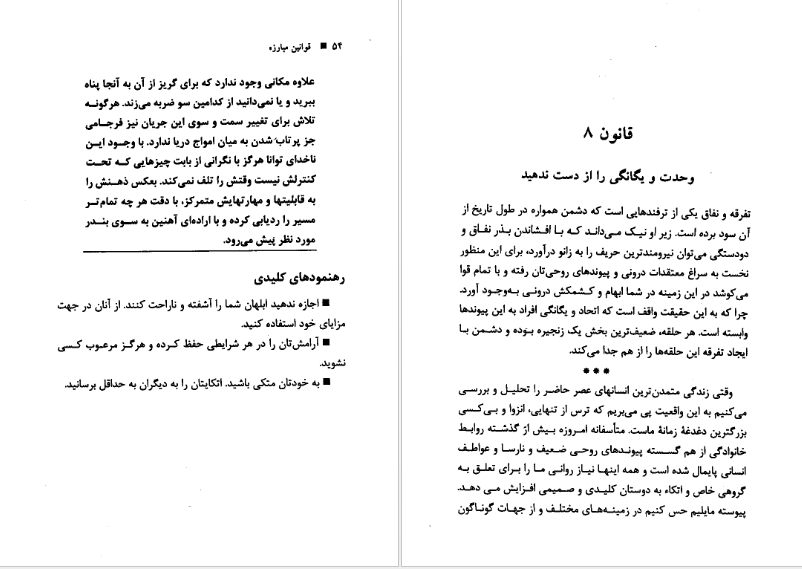 ۵۴ ■ قوانین مبارزه
علاوه مکانی وجود ندارد که برای گریز از آن به آنجا پناه
ببرید و یا نمی‌دانید از کدامین سو ضربه می‌زند. هرگونه
تلاش برای تغییر سمت و سوی این جریان نیز فرجامی
جز پرتاب شدن به میان امواج دریا ندارد. با وجود این
ناخدای توانا هرگز با نگرانی از بابت چیزهایی که تحت
کنترلش نیست وقتش را تلف نمی‌کند. بعکس ذهنش را
به قابلیتها و مهارتهایش متمرکز، با دقت هر چه تمام‌تر
مسیر را ردیابی کرده و با اراده‌ای آهنین به سوی بندر
مورد نظر پیش می‌رود.
رهنمودهای کلیدی
■ اجازه ندهید ابلهان شما را آشفته و ناراحت کنند. از آنان در جهت
مزایای خود استفاده کنید.
■ آرامش‌تان را در هر شرایطی حفظ کرده و هرگز مرعوب کسی
نشوید.
■ به خودتان متکی باشید. اتکایتان را به دیگران به حداقل برسانید.
قانون ۸
وحدت و یگانگی را از دست ندهید
تفرقه و نفاق یکی از ترفندهایی است که دشمن همواره در طول تاریخ از
آن سود برده است. زیر او نیک می‌داند که با افشاندن بذر نفاق و
دودستگی می‌توان نیرومندترین حریف را به زانو درآورد، برای این منظور
نخست به سراغ معتقدات درونی و پیوندهای روحی‌تان رفته و با تمام قوا
می‌کوشد در این زمینه در شما ابهام و کشمکش درونی به‌وجود آورد.
چرا که به این حقیقت واقف است که اتحاد و یگانگی افراد به این پیوندها
وابسته است. هر حلقه، ضعیف‌ترین بخش یک زنجیره بوده و دشمن با
ایجاد تفرقه این حلقه‌ها را از هم جدا می‌کند.
***
وقتی زندگی متمدن‌ترین انسانهای عصر حاضر را تحلیل و بررسی
می‌کنیم به این واقعیت پی می‌بریم که ترس از تنهایی، انزوا و بی‌کسی
بزرگترین دغدغهٔ زمانهٔ ماست. متأسفانه امروزه بیش از گذشته روابط
خانوادگی از هم گسسته پیوندهای روحی ضعیف و نارسا و عواطف
انسانی پایمال شده است و همه اینها نیاز روانی ما را برای تعلق به
گروهی خاص و اتکاء به دوستان کلیدی و صمیمی افزایش می دهد.
پیوسته مایلیم حس کنیم در زمینه‌های مختلف و از جهات گوناگون